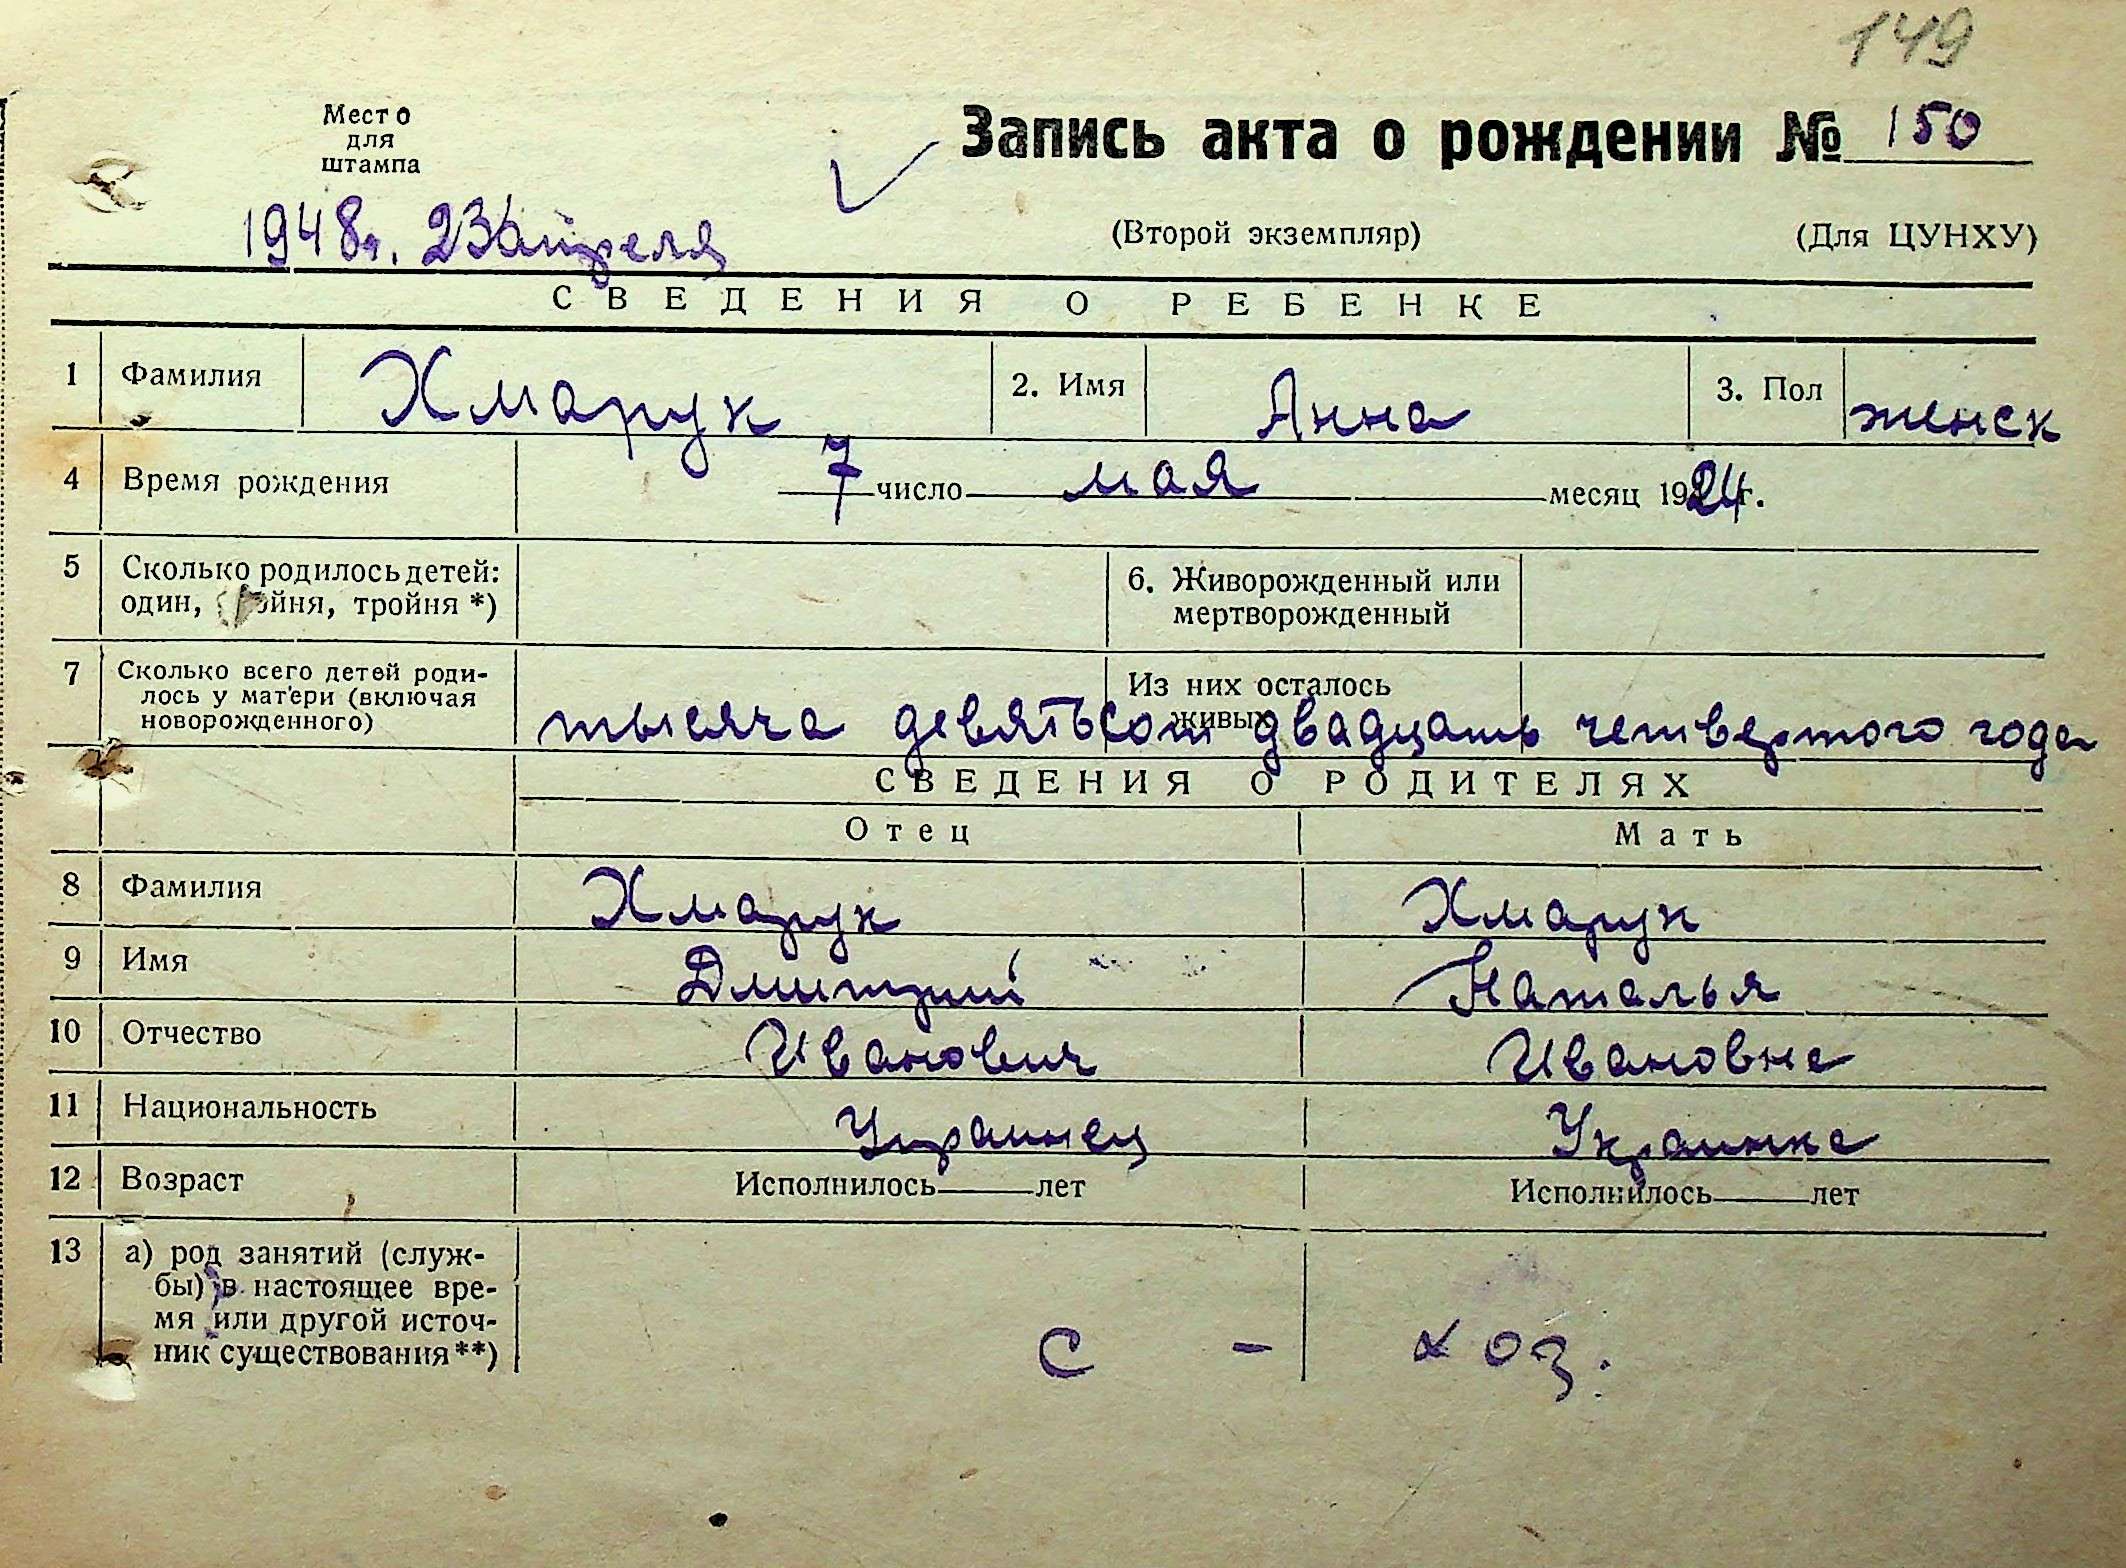 149
Место
для
штампа
Запись акта о рождении № 150
1948г. 23 апреля
(Второй экземпляр) (Для ЦУНХУ)
СВЕДЕНИЯ О РЕБЕНКЕ
1 Фамилия Хмарук 2. Имя Анна 3. Пол женск
4 Время рождения 7 число мая месяц 1924 г.
5 Сколько родилось детей:
один, двойня, тройня *)
6. Живорожденный или
мертворожденный
7 Сколько всего детей роди-
лось у матери (включая
новорожденного)
Из них осталось
живых
тысяча девятьсот двадцать четвертого года
СВЕДЕНИЯ О РОДИТЕЛЯХ
Отец Мать
8 Фамилия Хмарук Хмарук
9 Имя Дмитрий Наталья
10 Отчество Иванович Ивановна
11 Национальность Украинец Украинка
12 Возраст Исполнилось лет Исполнилось лет
13 а) род занятий (служ-
бы) в настоящее вре-
мя или другой источ-
ник существования**)
с - хоз.